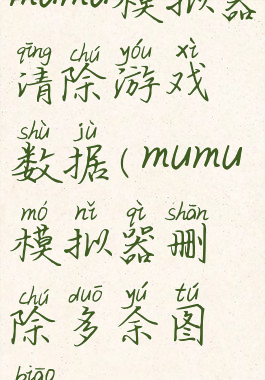 mumu模拟器
qīng chú yóu xì
清除游戏
shù jù
数据(mumu
mó nǐ qì shān
模拟器删
chú duō yú tú
除多余图
biāo